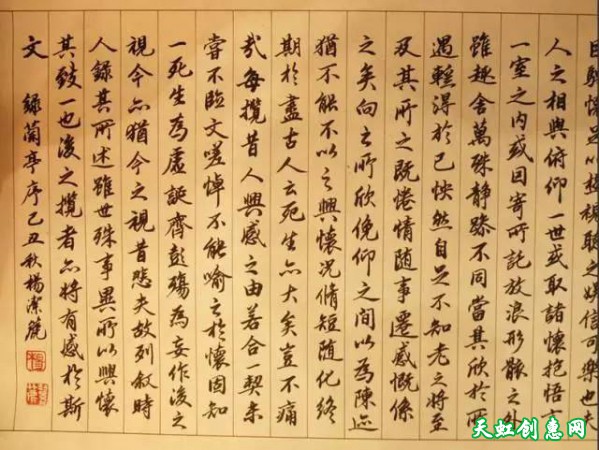 目騁懷足以極視聽之娛信可樂也夫
人之相與俯仰一世或取諸懷抱悟言
一室之內或因寄所託放浪形骸之外
雖趣舍萬殊靜躁不同當其欣於所
遇輒得於己怏然自足不知老之將至
及其所之既惓情隨事遷感慨係
之矣向之所欣俛仰之間以為陳迹
猶不能不以之興懷況脩短隨化終
期於盡古人云死生亦大矣豈不痛
哉每攬昔人興感之由若合一契未
嘗不臨文嗟悼不能喻之於懷固知
一死生為虛誕齊彭殤為妄作後之
視今亦猶今之視昔悲夫故列敘時
人錄其所述雖世殊事異所以興懷
其致一也後之攬者亦將有感於斯
文 錄蘭亭序己丑秋楊潔麗
天虹创惠网